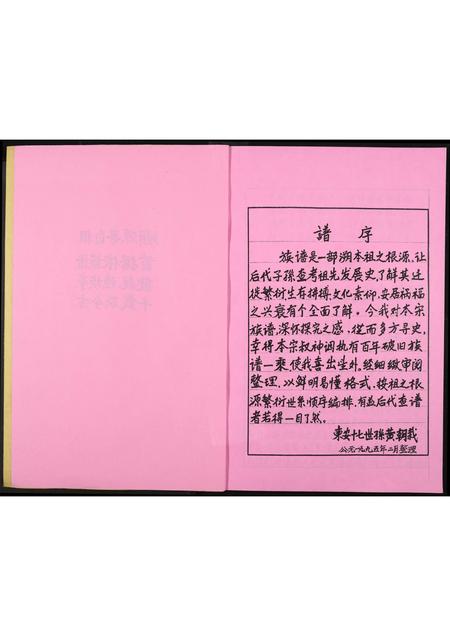 譜序
族谱是一部溯本祖之根源、让
后代子孫查考祖先发展史,了解其迁
徙繁衍生存拼搏,文化素仰,安居祸福
之兴衰有个全面了解。今我对本宗
族谱,深怀探究之感,從而多方寻史,
幸得本宗叔神调执有百年破旧族
谱一乘,使我喜出望外,经细緻审阅
整理,以鲜明易懂格式,按祖之根
源繁衍世系顺序编排,有益后代查谱
者若得一目了然。
東安十七世孫黄朝栽
公元一九九五年二月整理